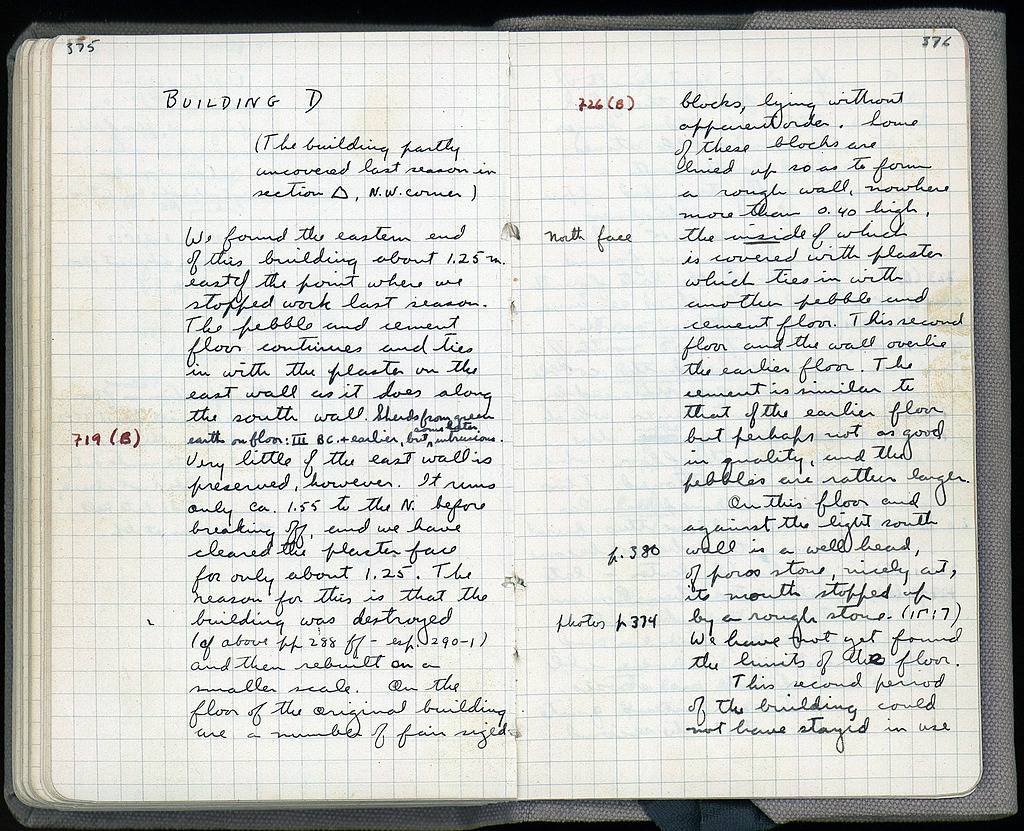 375
BUILDING D
(The building partly
uncovered last season in
section Δ, N.W. corner)
We found the eastern end
of this building about 1.25 m.
east of the point where we
stopped work last season.
The pebble and cement
floor continues and ties
in with the plaster on the
east wall as it does along
the south wall. Sherds from green
719 (B)
earth on floor: III BC. + earlier, but some later, intrusions.
Very little of the east wall is
preserved, however. It runs
only ca. 1.55 to the N. before
breaking off, and we have
cleared the plaster face
for only about 1.25. The
reason for this is that the
building was destroyed
(cf above pp 288 ff - esp. 290-1)
and then rebuilt on a
smaller scale. On the
floor of the original building
are a number of fair sized
376
726 (B)
blocks, lying without
apparent order. Some
of these blocks are
lined up so as to form
a rough wall, nowhere
more than 0.40 high,
North face
the inside of which
is covered with plaster
which ties in with
another pebble and
cement floor. This second
floor and the wall overlie
the earlier floor. The
cement is similar to
that of the earlier floor
but perhaps not as good
in quality, and the
pebbles are rather larger.
On this floor and
against the light south
p. 380
wall is a well head,
of poros stone, nicely cut,
its mouth stopped up
photos p 374
by a rough stone.
We have not yet found
the limits of the floor.
This second period
of the building could
not have stayed in use